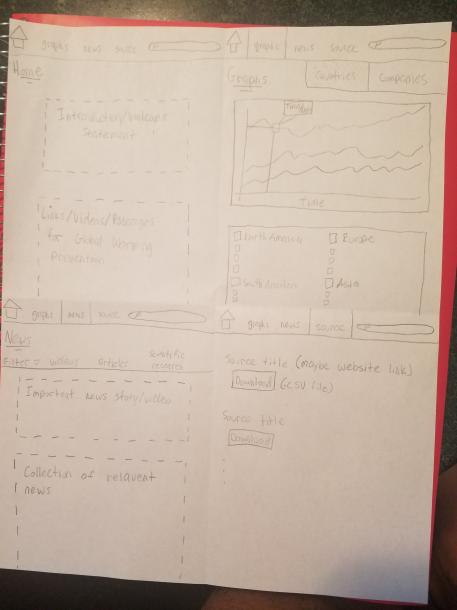 graphs news source
Home
Introductory/Welcome
Statement
Links/Videos/Passages
for Global Warming
Prevention
graphs news source
Graphs countries companies
Time
North America Europe
South America Asia
graphs news source
News
Filter = videos articles scientific
research
Important news story/video
Collection of relavent
news
graphs news source
Source title (maybe website link)
Download (CSV file)
Source title
Download